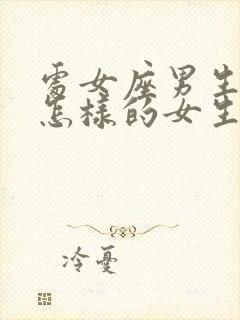 處女座男生
怎樣的女生
冷憂